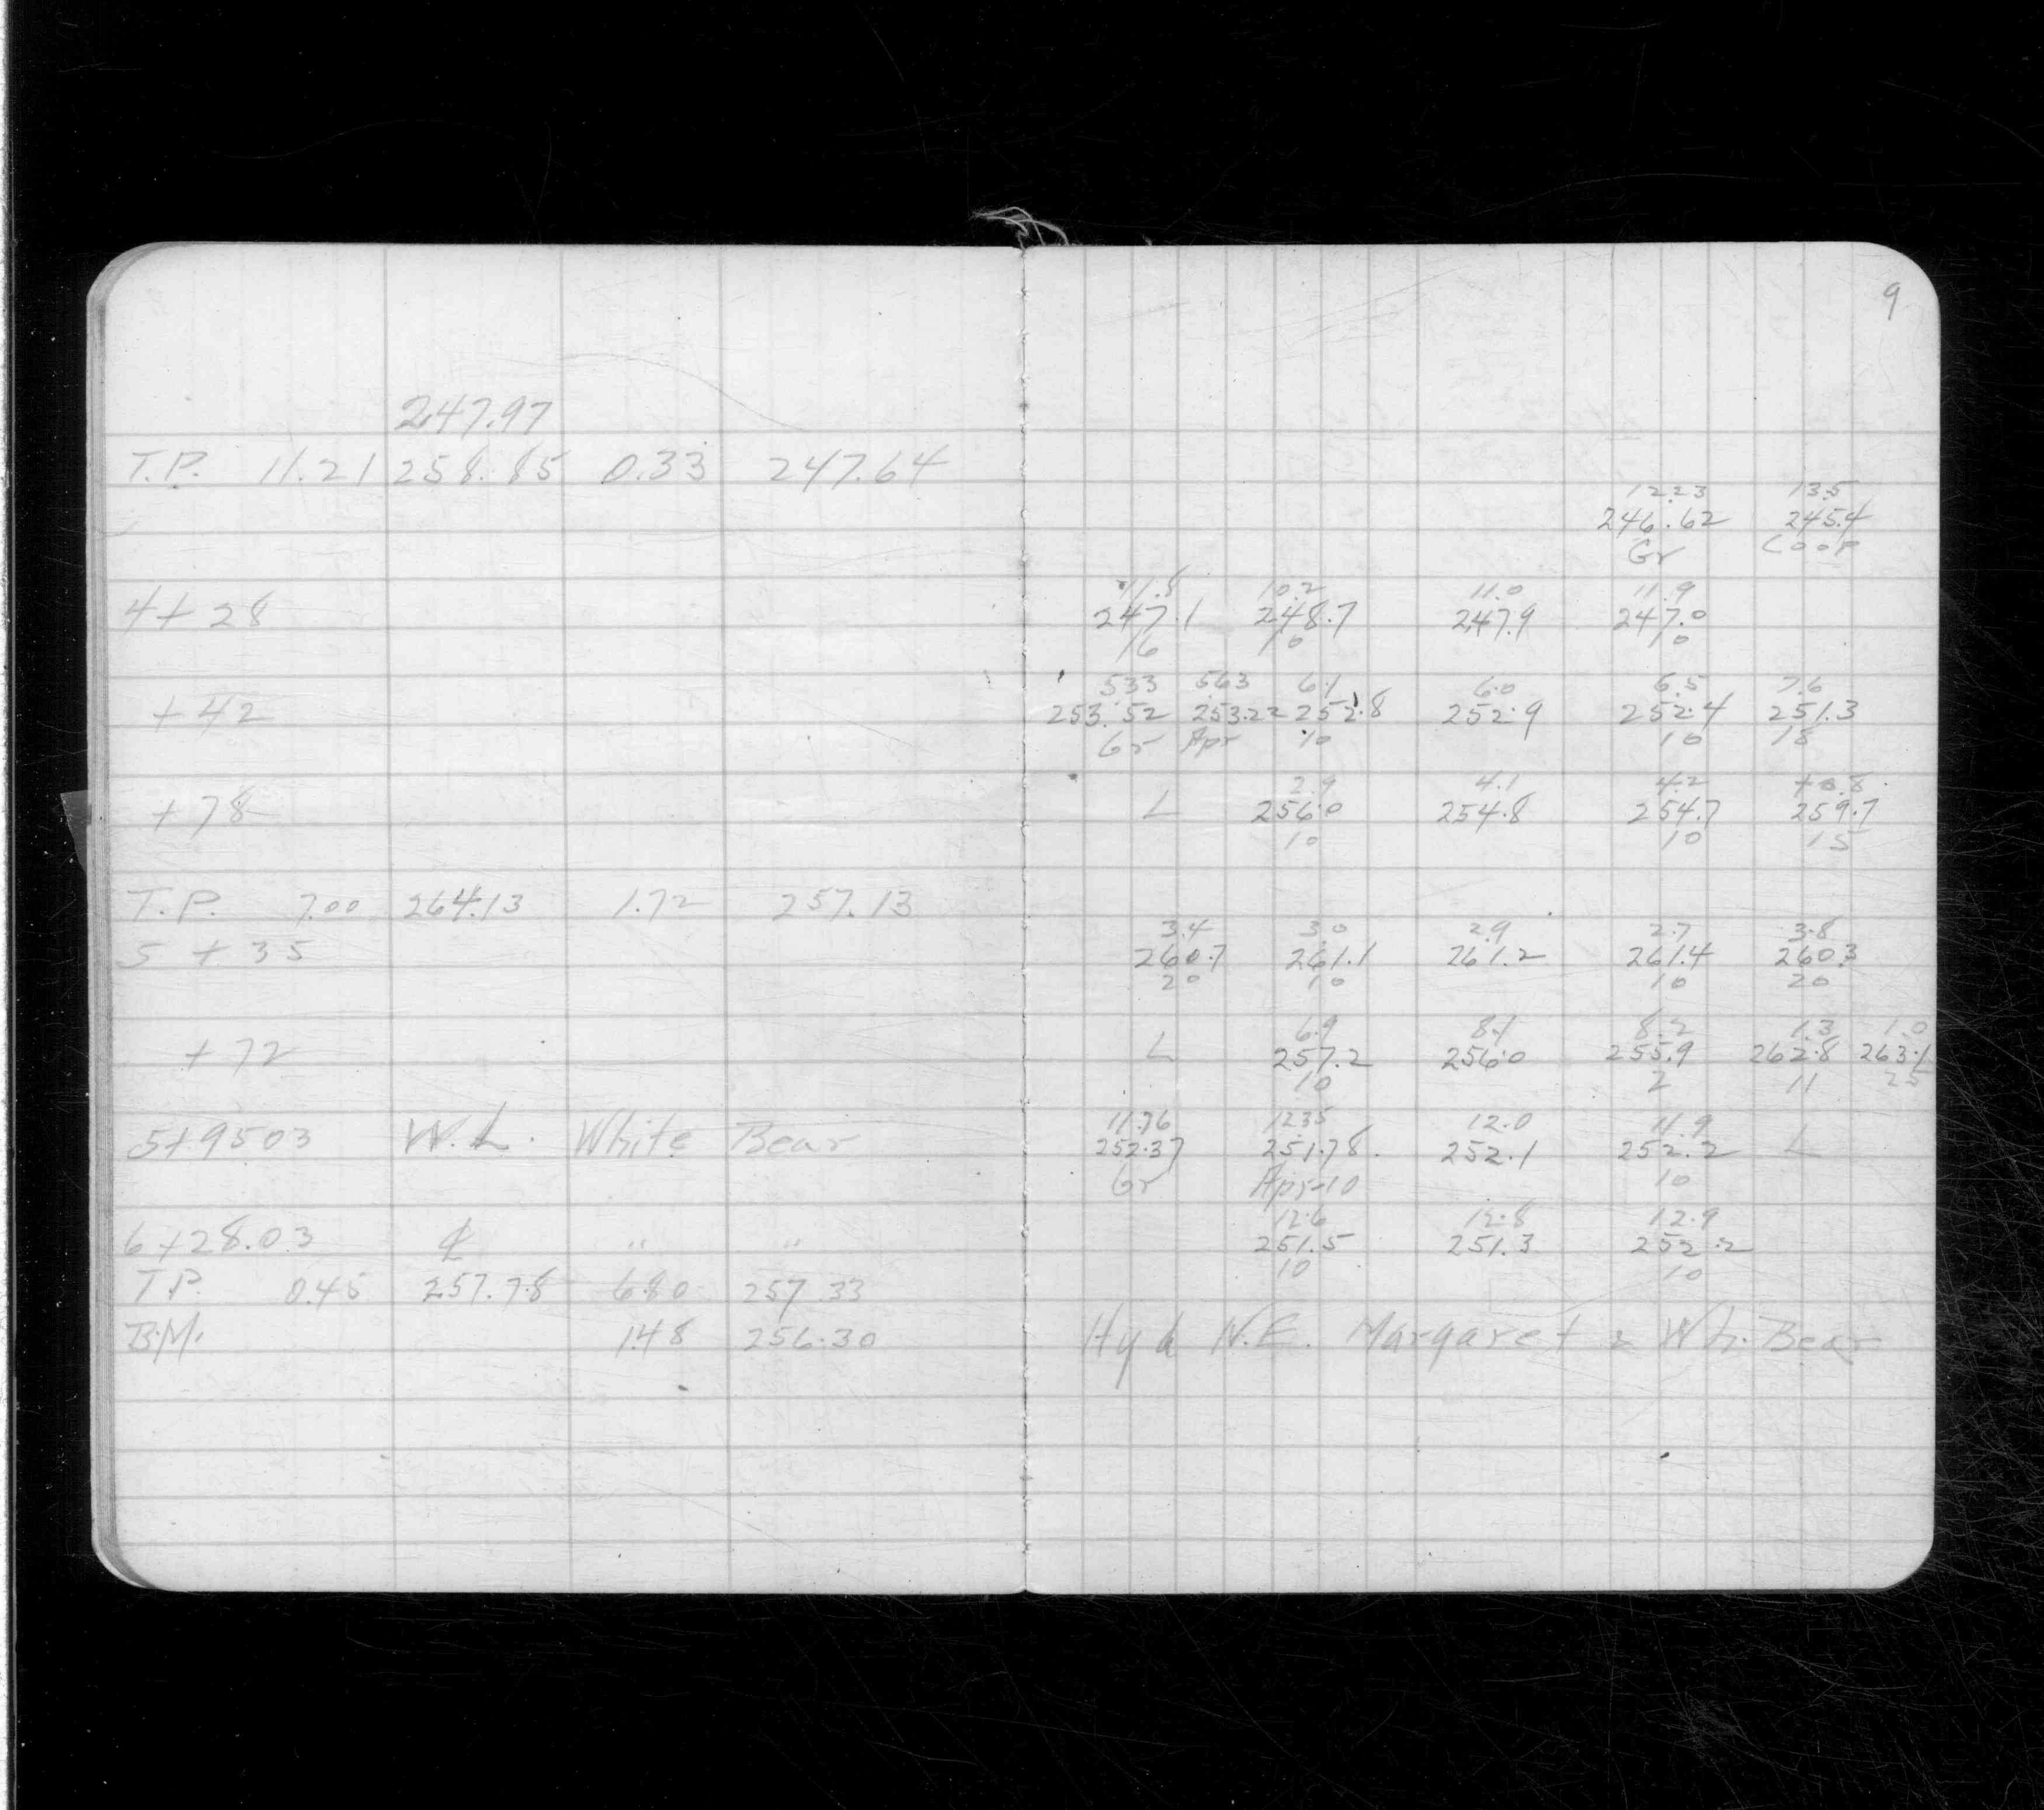 9
247.97
T.P. 11.21 258.85 0.33 247.64
12.23 13.5
246.62 245.4
Gr Coop
11.8 10.2 11.0 11.9
4+28 247.1 248.7 247.9 247.0
16 10 10
533 563 6.1 6.0 6.5 7.6
+42 253.52 253.22 252.8 252.9 252.4 251.3
Gr Apr 10 10 18
2.9 4.1 4.2 +0.8
+78 L 256.0 254.8 254.7 259.7
10 10 15
T.P. 7.00 264.13 1.72 257.13
3.4 3.0 2.9 2.7 3.8
5+35 260.7 261.1 261.2 261.4 260.3
20 10 10 20
6.9 8.1 8.2 1.3 1.0
+72 L 257.2 256.0 255.9 262.8 263.1
10 2 11 25
11.76 12.35 12.0 11.9
5+9503 W.L. White Bear 252.37 251.78 252.1 252.2 L
Gr Apr-10 10
12.6 12.8 12.9
6+28.03 ℄ " " 251.5 251.3 252.2
10 10
T.P. 0.45 257.78 6.80 257.33
B.M. 1.48 256.30 Hyd N.E. Margaret & Wh. Bear